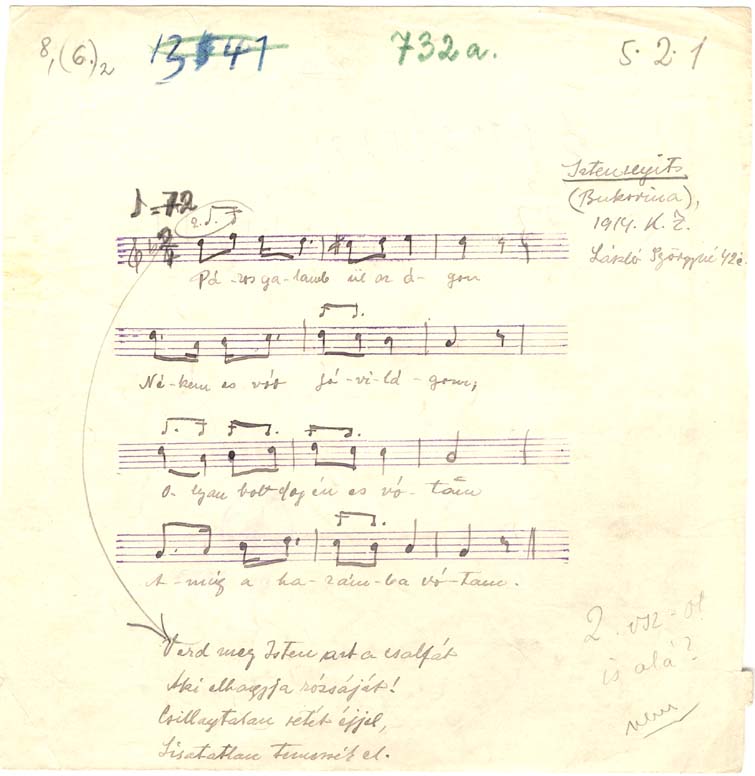 8,(6.)2 13 41 732a. 5. 2. 1
Istensegits
(Bukovina),
1914. K. Z.
László Györgyné 42é.
♪=72
2.
2/4
Pá-rosga-lamb ül az á-gon
Né-kem es vót jó-vi-lá-gom;
O-lyan boldog én es vó-tam
A-míg a ha-zám-ba vó-tam.
Verd meg Isten azt a csalfát
Aki elhagyja rózsáját!
Csillagtalan setét éjjel,
temessék el.
2. vsz-ot
is alá?
nem